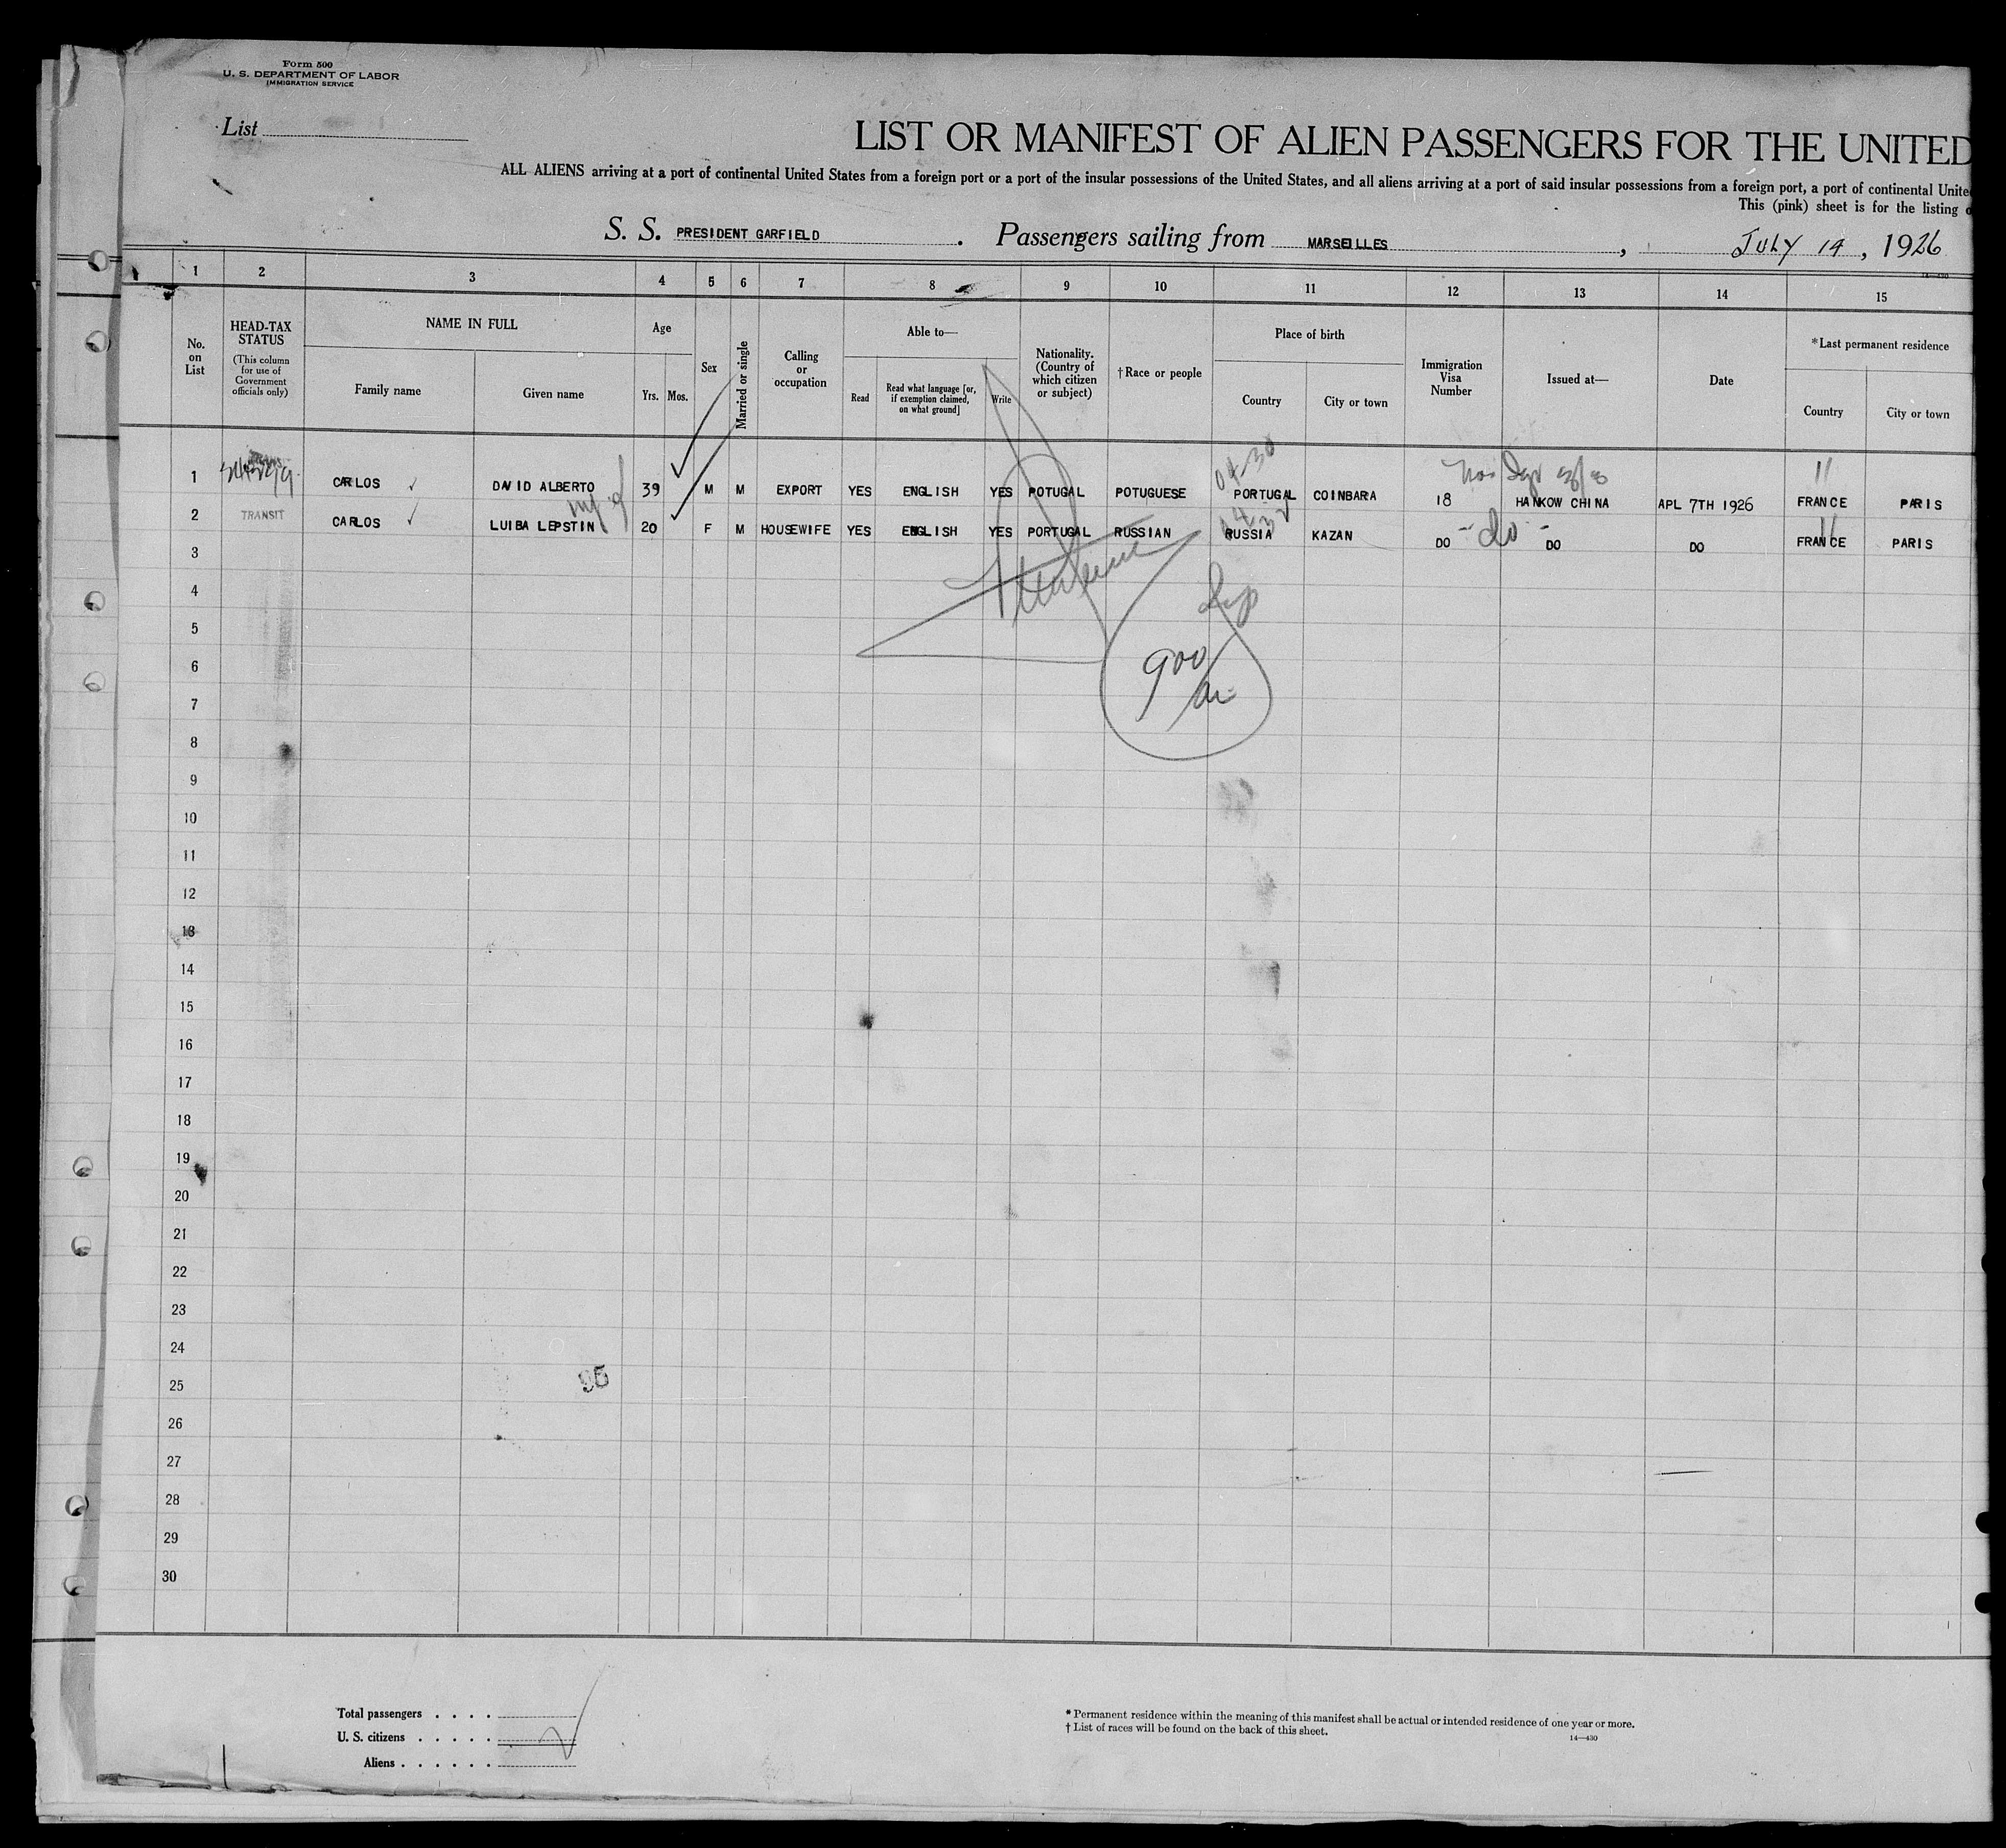 Form 500
U. S. DEPARTMENT OF LABOR
IMMIGRATION SERVICE
List
LIST OR MANIFEST OF ALIEN PASSENGERS FOR THE UNITED
ALL ALIENS arriving at a port of continental United States from a foreign port or a port of the insular possessions of the United States, and all aliens arriving at a port of said insular possessions from a foreign port, a port of continental Unite
This (pink) sheet is for the listing o
S. S. PRESIDENT GARFIELD . Passengers sailing from MARSEILLES , JULY 14 , 1926
1 2 3 4 5 6 7 8 9 10 11 12 13 14 15
No. on List
HEAD-TAX STATUS (This column for use of Government officials only)
NAME IN FULL
Family name Given name
Age
Yrs. Mos.
Sex
Married or single
Calling or occupation
Able to—
Read
Read what language [or, if exemption claimed, on what ground]
Write
Nationality. (Country of which citizen or subject)
†Race or people
Place of birth
Country City or town
Immigration Visa Number
Issued at—
Date
*Last permanent residence
Country City or town
1 CARLOS DAVID ALBERTO 39 M M EXPORT YES ENGLISH YES POTUGAL POTUGUESE PORTUGAL COINBARA 18 HANKOW CHINA APL 7TH 1926 FRANCE PARIS
04-30
2 TRANSIT CARLOS LUIBA LEPSTIN 20 F M HOUSEWIFE YES ENGLISH YES PORTUGAL RUSSIAN RUSSIA KAZAN DO - do - DO DO FRANCE PARIS
3
4
5
6
900
7
8
9
10
11
12
13
14
15
16
17
18
19
20
21
22
23
24
25
26
27
28
29
30
Total passengers . . . .
U. S. citizens . . . . .
Aliens . . . . . .
* Permanent residence within the meaning of this manifest shall be actual or intended residence of one year or more.
† List of races will be found on the back of this sheet.
14—430